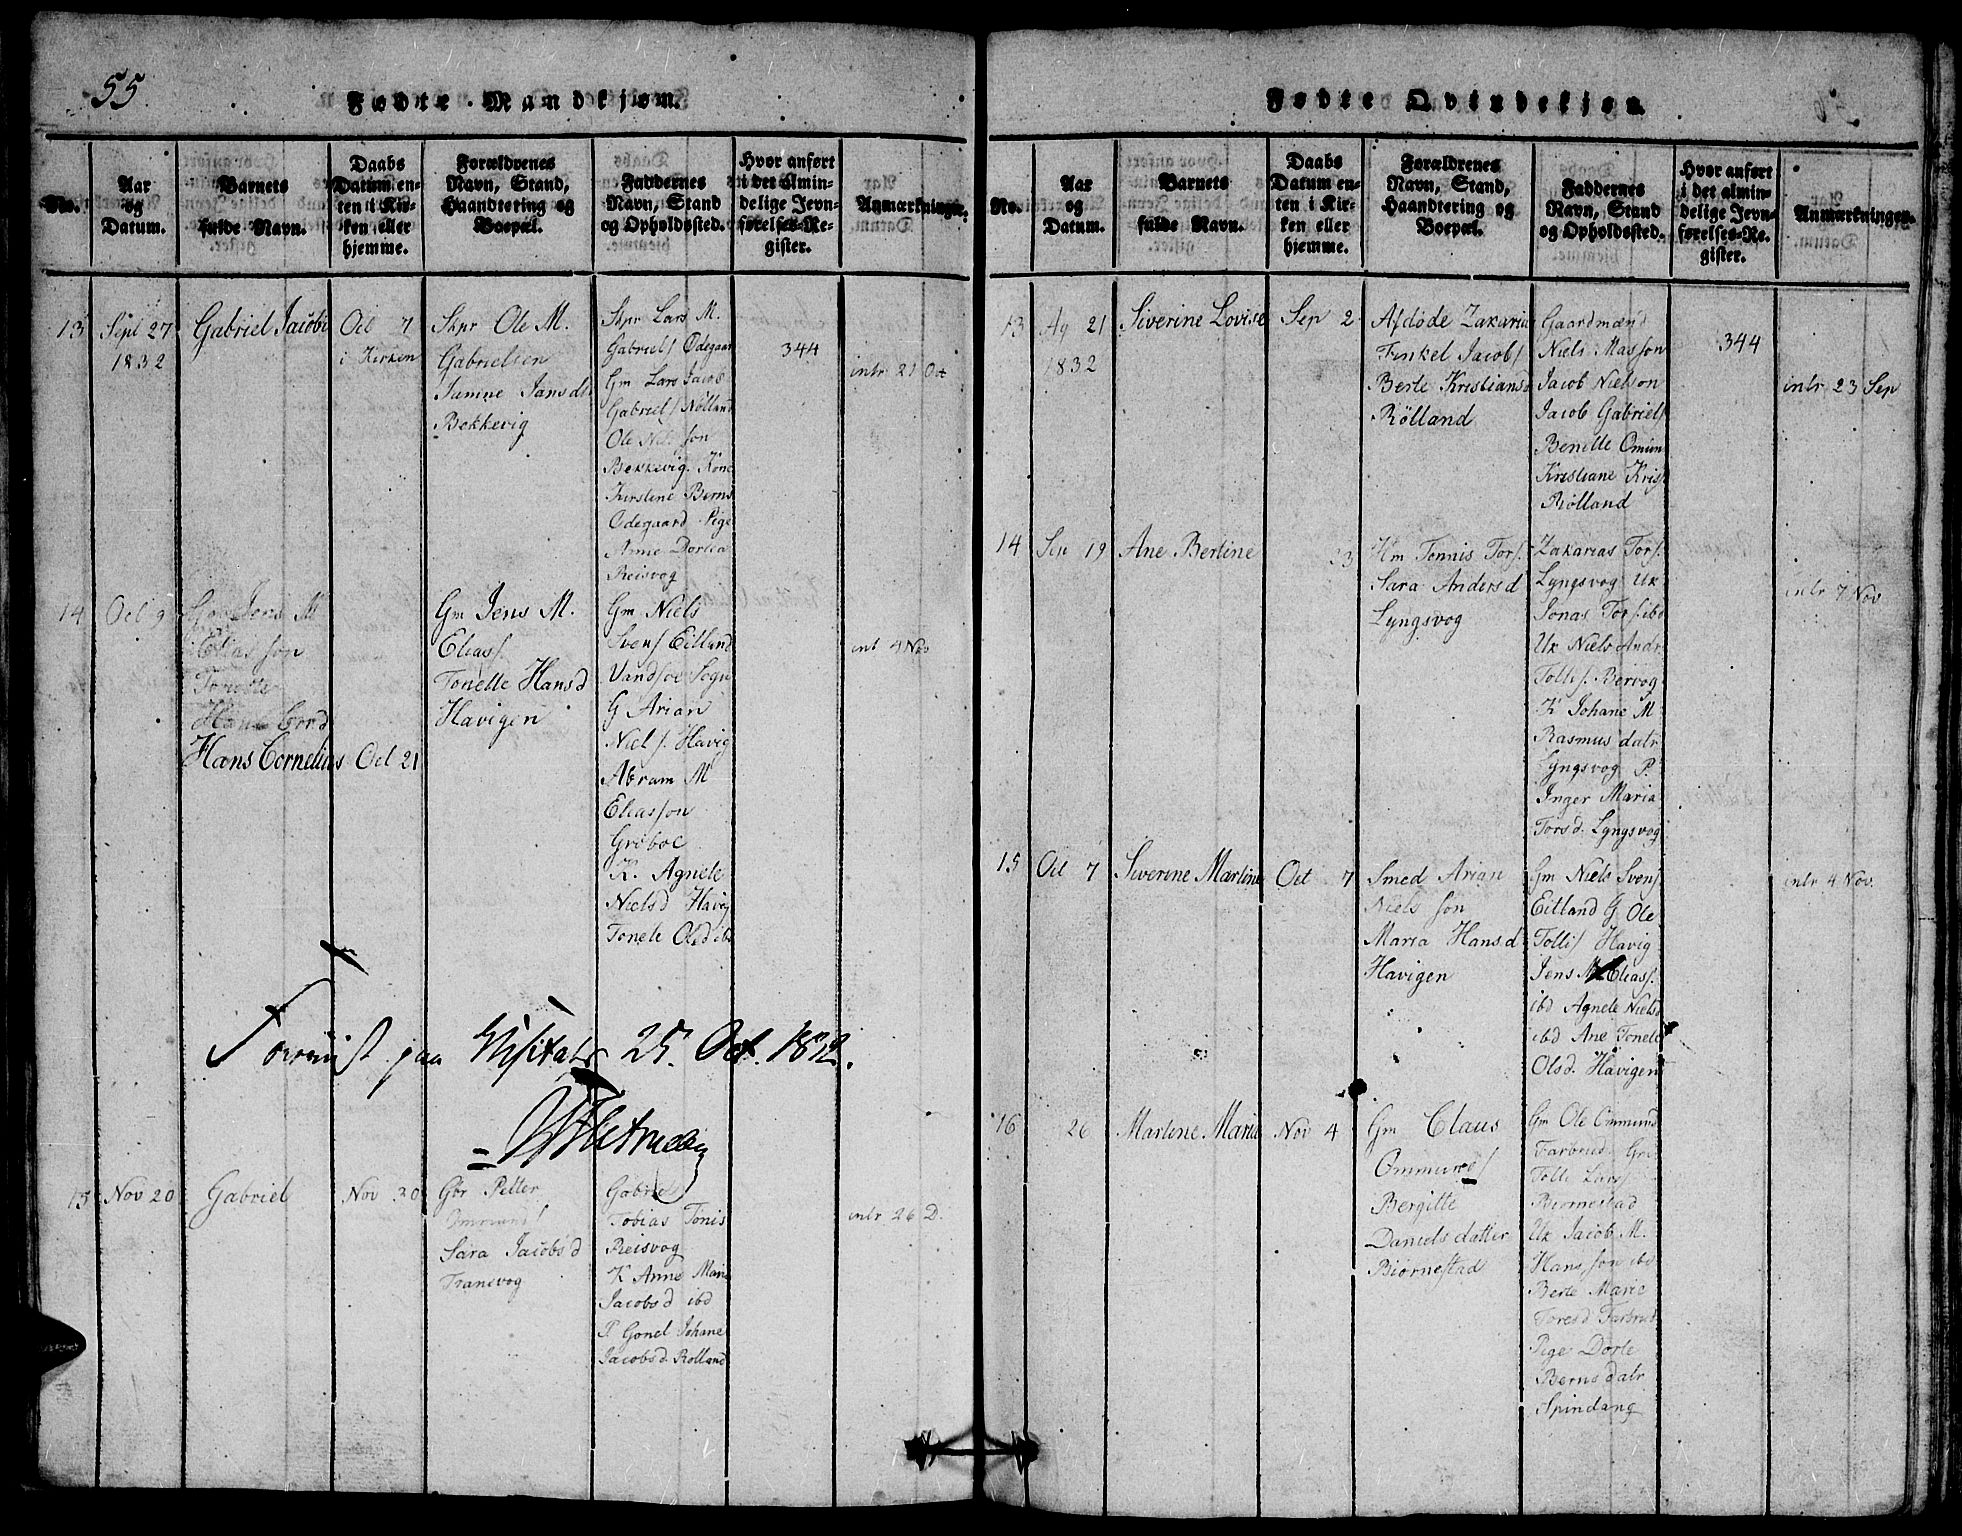 55.
Fødte Mandkjøn.
No.
Aar
og
Datum.
Barnets
fulde Navn.
Daabs
Datum en-
ten i Kir-
ken eller
hjemme.
Forældrenes
Navn, Stand,
Haandtering og
Boepæl.
Faddernes
Navn, Stand
og Opholdssted.
Hvor anført
i det almin-
delige Jevn-
førelses-Re-
gister.
Anmærkninger.
13
Sept 27
1832
Gabriel Jacobi
Oct 7
i Kirken
Skpr Ole M.
Gabrielsen
Jansd
Bekkevig
Skpr Lars M.
Gabriels Ødegaar
Gm Lars Jacob
Gabriels Nolland
Ole Nils son
Bekkevig. Kone
Kirstine Berns
Odegaard Pige
Anne Dortea
Reisvog
344
intr 21 Oct
14
Oct 9
Jens M
Elias son
Tonette
Hans Cornelius
Oct 21
Gm Jens M.
Elias.
Tonette Hansd
Havigen
Gm Niels
Svens Eitland
Vandsøe Sogn
G Arian
Niels. Havig
Abram M
Eliasson
Griboe
K. Agnete
Nielsd Havig
Tonete Olsd ibd
int 4 Nov
paa Visitats 25. Oct. 1832.
15
Nov 20
Gabriel
Nov 30
Gbr Petter
Ommunds
Sara Jacobsd
Transvog
Gabriel
Tobias Tonis
Reisvog
K Anne Marie
Jacobsd ibd
P Gonel Johane
Jacobsd. Rolland
intr 26 D.
Fødte Qvindekjøn.
No.
Aar
og
Datum.
Barnets
fulde Navn.
Daabs
Datum en-
ten i Kir-
ken eller
hjemme.
Forældrenes
Navn, Stand,
Haandtering og
Boepæl.
Faddernes
Navn, Stand
og Opholdssted.
Hvor anført
i det almin-
delige Jevn-
førelses-Re-
gister.
Anmærkninger.
13
Ag 21
1832
Siverine Lovise
Sep 2
Afdöde Zakaria
Finkel Jacobs
Berte Kristiansd
Rölland
Gaardmænd
Niels Masson
Jacob Nielson
Jacob Gabriels
Benitte Omun
Kristiane Kris
Rölland
344
intr 23 Sep
14
Sep 19
Ane Bertine
23
Hm Tennis Tors.
Sara Andersd
Lyngsvog
Zakarias Tors.
Lyngsvog Uk
Jonas Tors ibd
Uk Niels Andr
Tollis. Bervog
K Johane M
Rasmus datr
Lyngsvog P.
Inger Maria
Torsd. Lyngsvog
intr 7 Nov
15
Oct 7
Siverine Martine
Oct 7
Smed Arian
Niels son
Maria Hansd
Havigen
Gm Niels Svens.
Eitland G Ole
Tollis Havig
Jens M Elias.
ibd Agnete Nielsd
ibd Ane Tonete
Olsd. Havigen
intr 4 Nov.
16
26
Martine Maria
Nov 4
Gm Claus
Ommunds
Bergitte
Daniels datter
Biørnestad
Gm Ole Ommund
Farbrud. Gr.
Tolli Lars
Biornestad
Uk Jacob M.
Hans son ibd
Berte Marie
Toresd Farbrud
Pige Dorte
Berns datr
Spindang